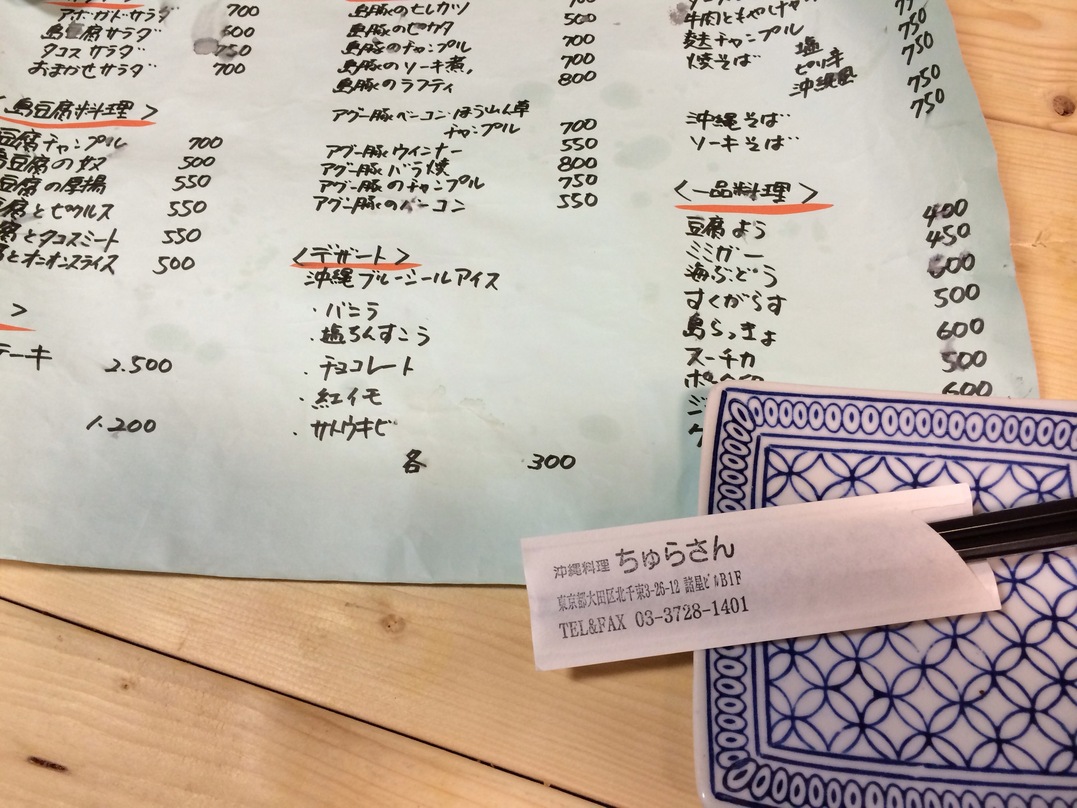 アボガドサラダ 700
島豆腐サラダ 600
タコスサラダ 750
おまかせサラダ 700
島豆腐料理 >
豆腐チャンプル 700
豆腐の奴 500
豆腐の厚揚 550
腐とピクルス 550
腐とタコスミート 550
とオニオンスライス 500
>
テーキ 2.500
1.200
島豚のヒレカツ
島豚のピカタ 500
島豚のチャンプル 700
島豚のソーキ煮 700
島豚のラフティ 800
アグー豚ベーコンほうれん草
チャンプル 700
アグー豚ウインナー 550
アグー豚バラ焼 800
アグー豚のチャンプル 750
アグー豚のベーコン 550
<デザート>
沖縄ブルーシールアイス
・バニラ
・塩ちんすこう
・チョコレート
・紅イモ
・サトウキビ
各 300
牛肉ともやし
麩チャンプル 750
焼そば 塩 750
ピリ辛
沖縄風
沖縄そば 750
ソーキそば 750
<一品料理>
豆腐よう 400
ミミガー 450
海ぶどう 600
すくがらす 500
島らっきょ 600
スーチカ 500
600
沖縄料理 ちゅらさん
東京都大田区北千束3-26-12 諸星ビルB1F
TEL&FAX 03-3728-1401